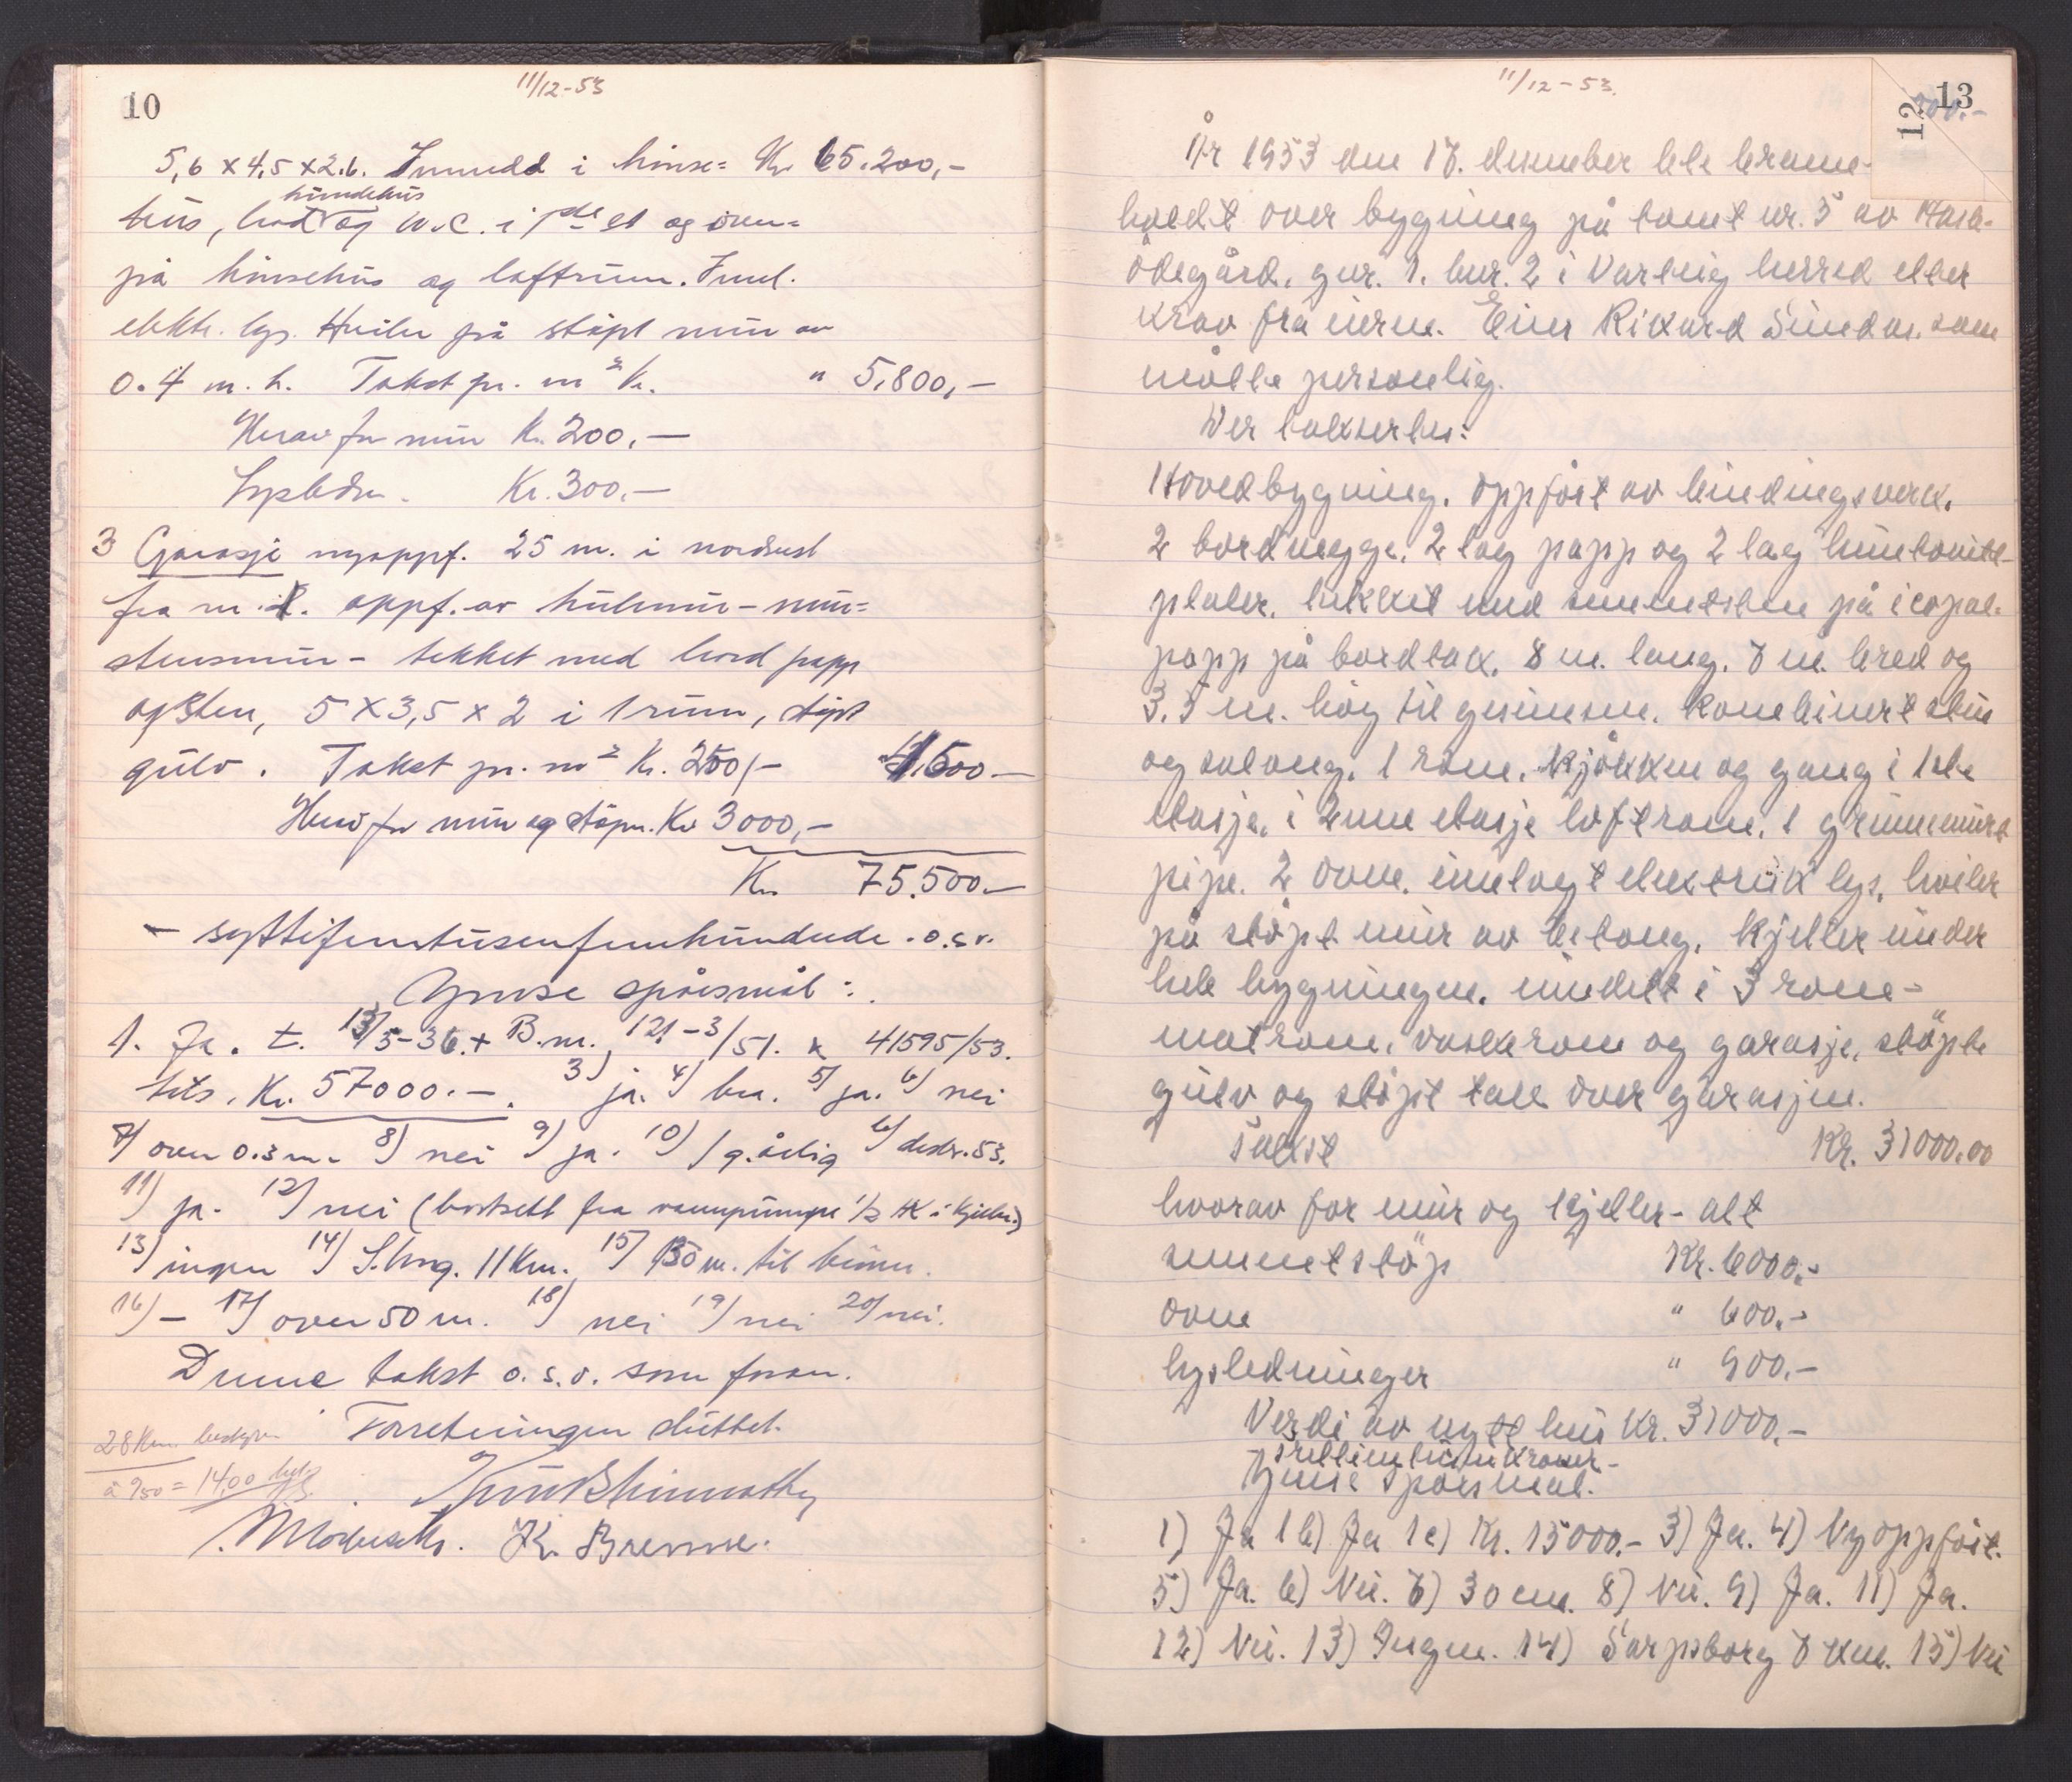 11/12-53
10
5,6 x 4,5 x 2.6. Innredd i hönse= Kr 65.200,-
hundehus
hus, bod og W.C. i 1ste et og oven=
på hönsehus og loftrum. Innl.
elektr. lys. Hviler på støpt mur av
0.4 m. h. Takst pr. m² Kr. " 5.800,-
Herav for mur Kr. 200,-
Lysledn. Kr. 300.-
3 Garasje nyoppf. 25 m. i nordvest
fra nr. 1. oppf. av hulmur - mur=
stensmur - tekket med bord papp
og sten, 5 X 3,5 x 2 i 1 rum, støpt
gulv. Takst pr. m² Kr. 250,- 4.500-
Herav for mur og støpn. Kr 3000,-
Kr. 75.500.-
- syttifemtusenfemhundrede - o.s.v.
Gjense spörsmål:
1. Ja. t. 13/5-36. + B.m. 121-3/51. 41595/53.
tils. Kr. 57000.-. 3) ja. 4) bra. 5) ja. 6) nei
7) over 0.3 m. 8) nei 9) ja. 10) 1 g. årlig 6/ desbr. 53.
11) ja. 12) nei (bortsett fra vannpumpe 1/2 HK i kjeller)
13) ingen 14) S.borg. 11 Km. 15) 150 m. til
16) - 17) over 50 m. 18) nei 19) nei 20) nei.
Denne takst o.s.v. som foran.
28 Km. Forretningen sluttet.
à 950 = 14,00
K. Bremse.
11/12-53.
12
13
År 1953 den 17. desember ble branntakst
holdt over bygning på tomt nr. 5 av Hasle-
ödegård, gnr. 1. bnr. 2 i Varteig herred etter
krav fra eieren. Einer Rikard Sundås. som
møtte personlig.
Der taksertes:
Hovedbygning. oppført av bindingsverk.
2 bordvegge, 2 lag papp og 2 lag huntonitt-
plater. tekket med sementsten på icopal-
papp på bordtak. 8 m. lang. 7 m. bred og
3.5 m. høg til gesimsen. Kombinert stue
og salong. 1 rom, kjøkken og gang i 1ste
etasje, i 2nne etasje loftrom. 1 grunnmurt
pipe. 2 ovne. innlagt elektrisk lys. hviler
på støpt mur av betong. Kjeller under
hele bygningen. inndelt i 3 rom -
matrom, vaskrom og garasje, støpte
gulv og støpt tak over garasjen.
Takst Kr. 31000.00
hvorav for mur og kjeller - alt
sementstøp Kr. 6000.-
ovne " 600.-
lysledninger " 900.-
Verdi av nytt hus Kr. 31000.-
Gjense spørsmål.
1) Ja 1b) Ja 1c) Kr. 15000.- 3) Ja. 4) Nyoppført.
5) Ja. 6) Nei. 7) 30 cm. 8) Nei. 9) Ja. 11) Ja.
12) Nei. 13) Ingen. 14) Sarpsborg 7 km. 15) Nei